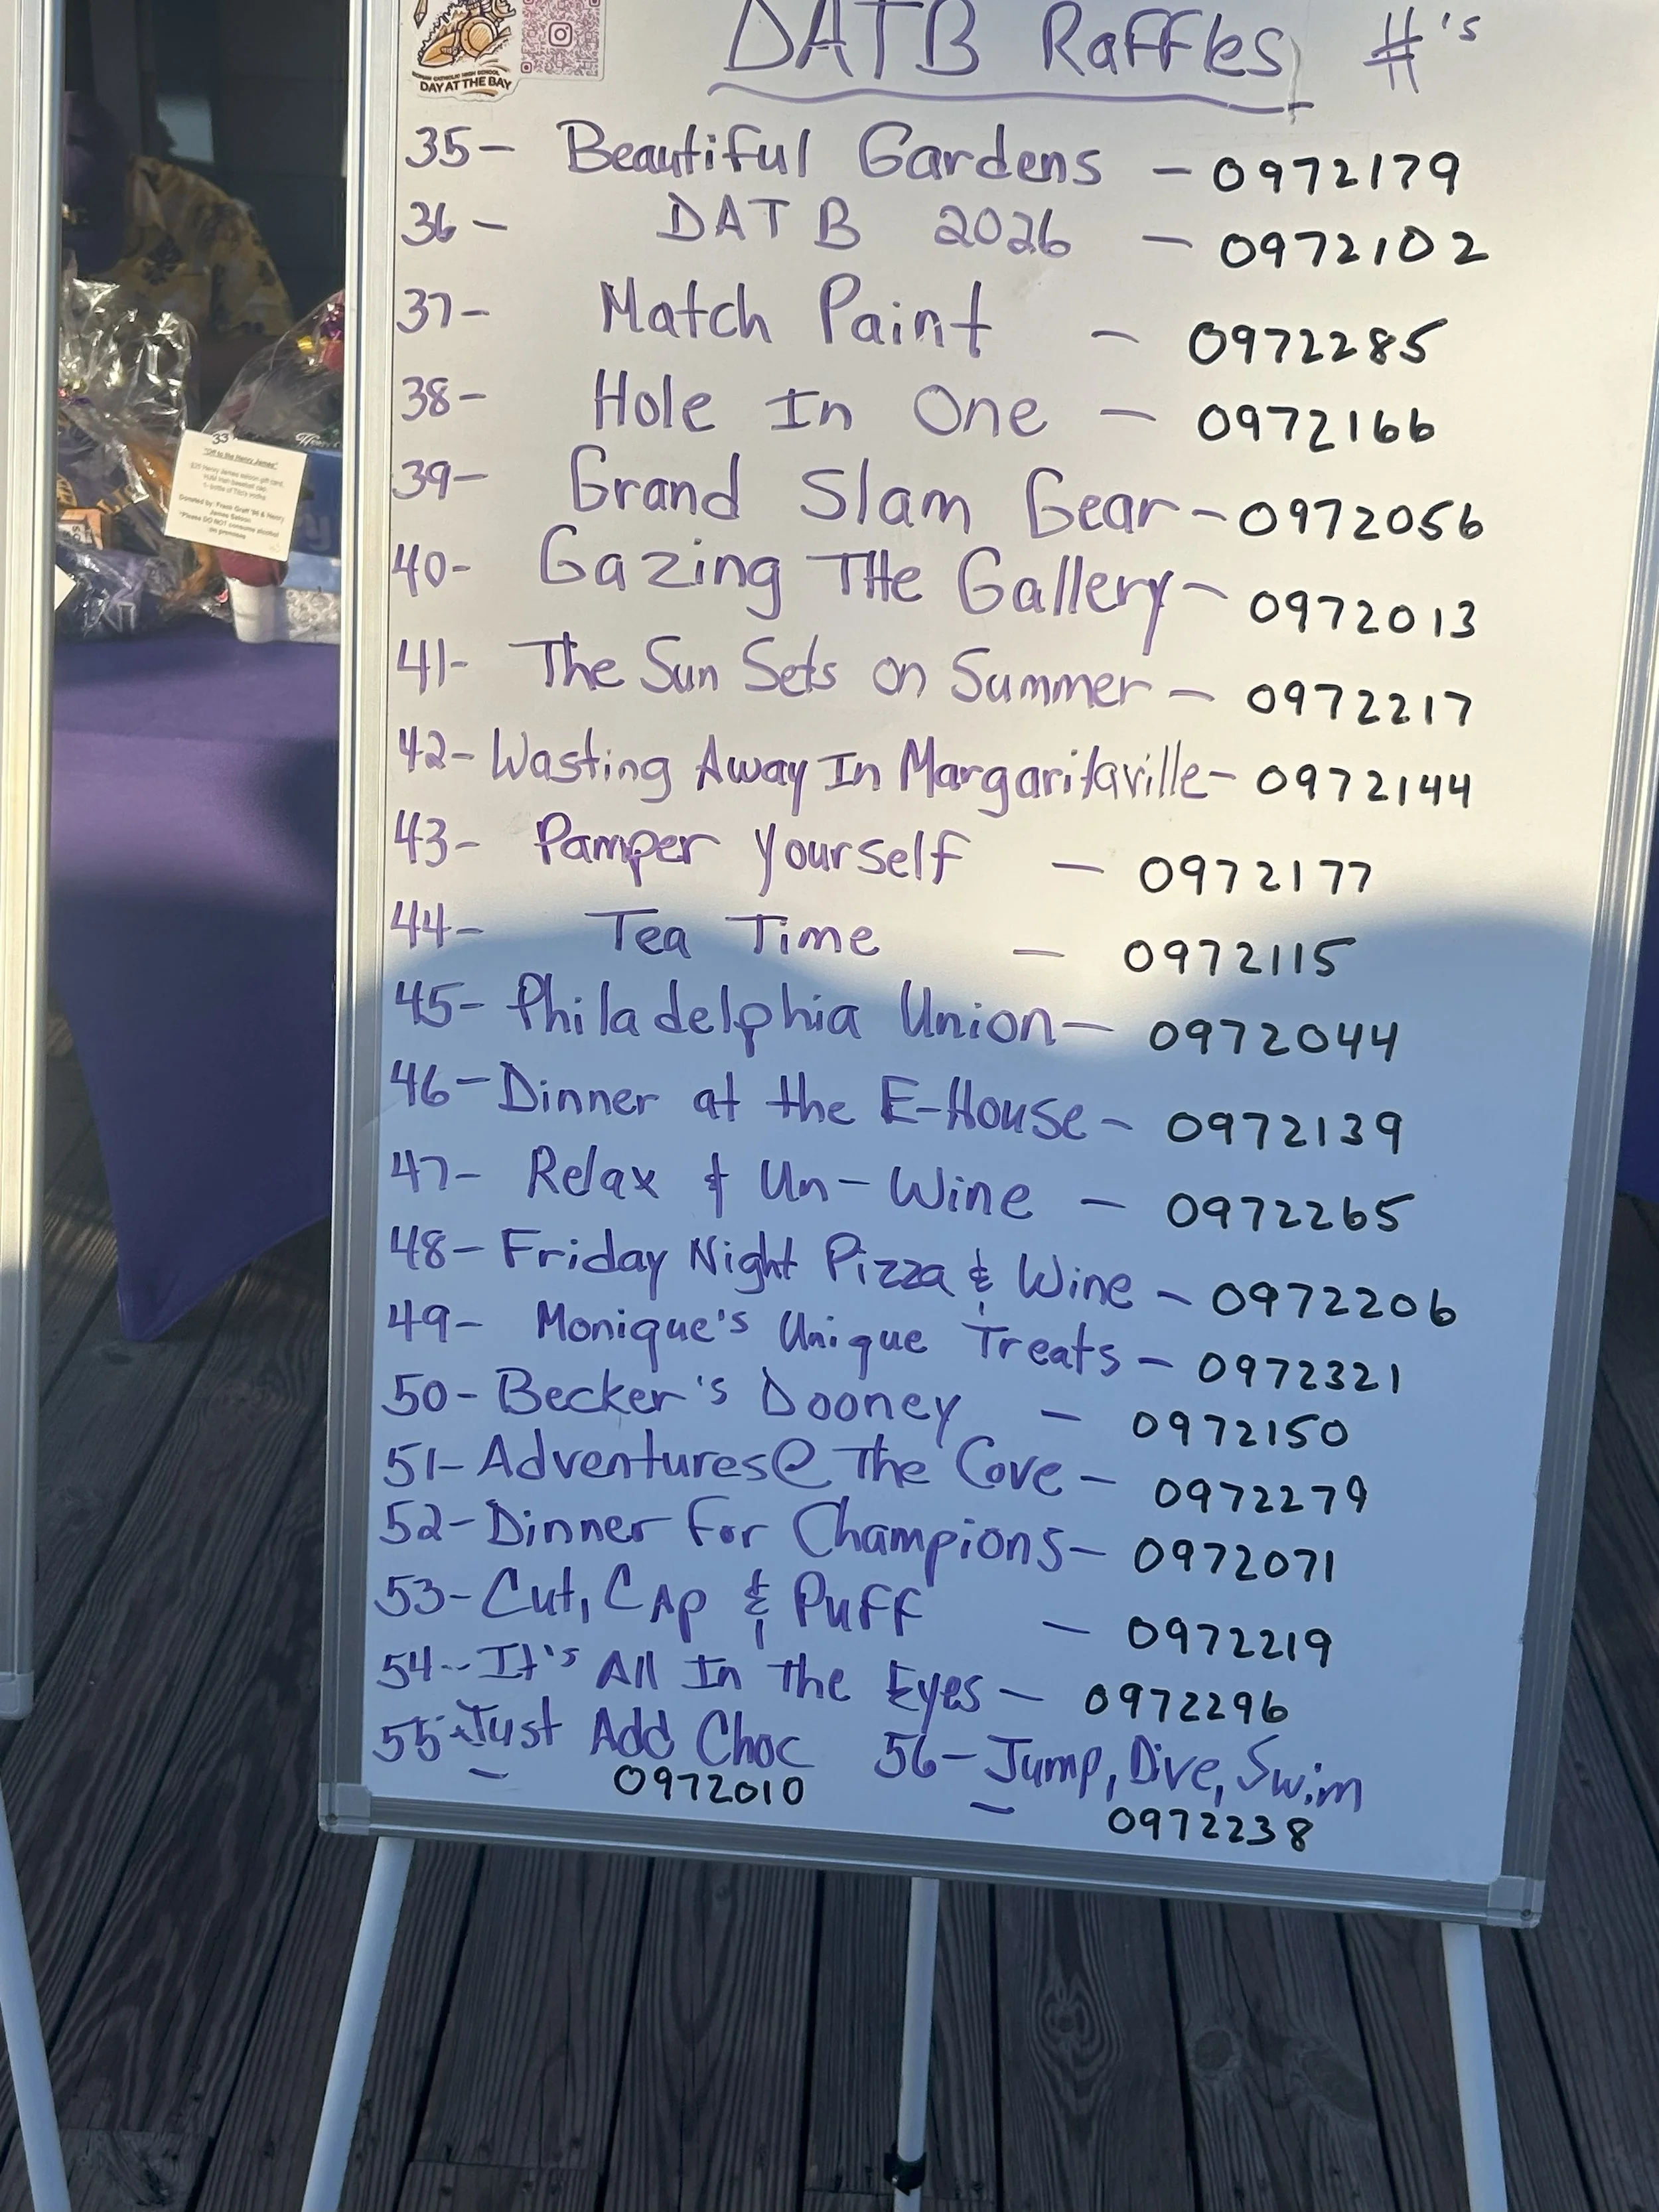 DATB Raffles #'s
CATHOLIC HIGH SCHOOL
DAY AT THE BAY
35- Beautiful Gardens - 0972179
36- DATB 2026 - 0972102
37- Match Paint - 0972285
38- Hole In One - 0972166
39- Grand Slam Gear - 0972056
40- Gazing THe Gallery - 0972013
41- The Sun Sets on Summer - 0972217
42- Wasting Away In Margaritaville - 0972144
43- Pamper Yourself - 0972177
44- Tea Time - 0972115
45- Philadelphia Union - 0972044
46- Dinner at the E-House - 0972139
47- Relax & Un-Wine - 0972265
48- Friday Night Pizza & Wine - 0972206
49- Monique's Unique Treats - 0972321
50- Becker's Dooney - 0972150
51- Adventures@ The Cove - 0972279
52- Dinner For Champions - 0972071
53- Cut, CAp & Puff - 0972219
54-- It's All In the Eyes - 0972296
55- Just Add Choc 56- Jump, Dive, Swim
- 0972010 - 0972238
33
"Off to the Henry James"
$25 Henry James saloon gift card,
Donated by: Frank Graff '86 & Henry
James Saloon
*Please DO NOT consume alcohol
on premises